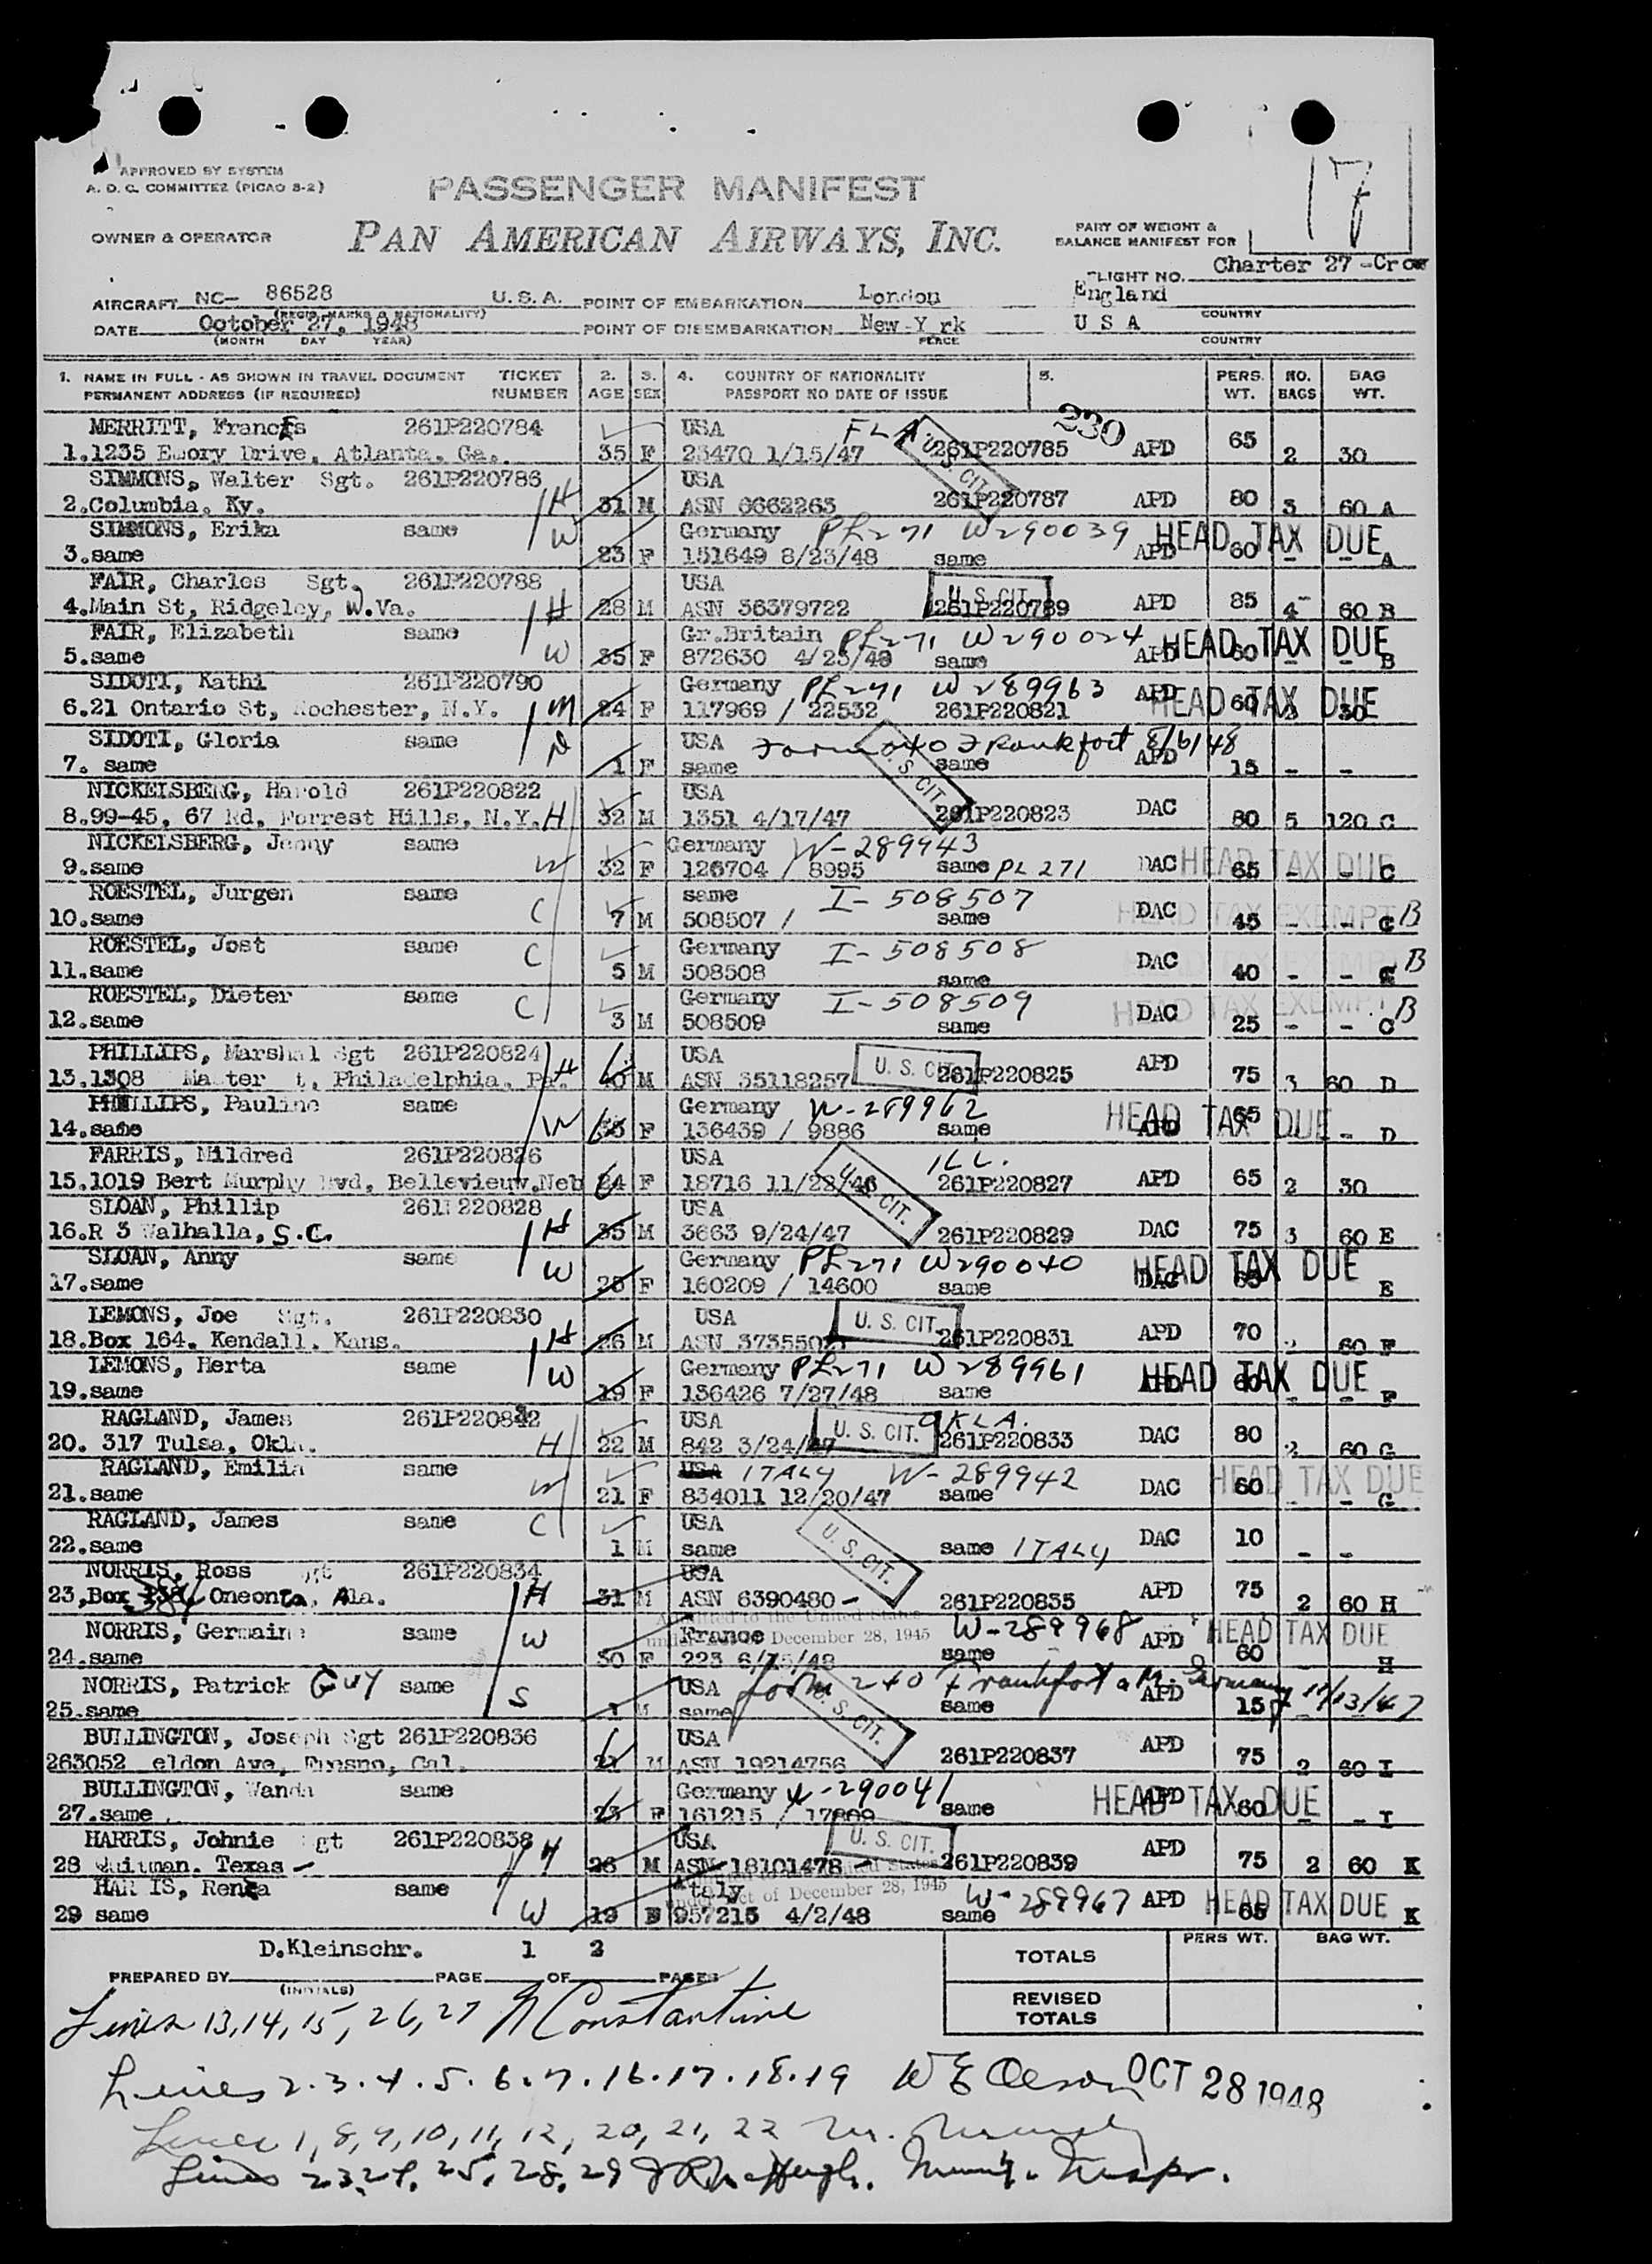 APPROVED BY SYSTEM
A. D. C. COMMITTEE (PICAO S-2)
PASSENGER MANIFEST
17
OWNER & OPERATOR
PAN AMERICAN AIRWAYS, INC.
PART OF WEIGHT &
BALANCE MANIFEST FOR
FLIGHT NO. Charter 27 -Crow
AIRCRAFT NC- 86528 U. S. A. POINT OF EMBARKATION London England
(REGIS. MARKS & NATIONALITY) COUNTRY
DATE October 27, 1948 POINT OF DISEMBARKATION New Y rk U S A
(MONTH DAY YEAR) PLACE COUNTRY
1. NAME IN FULL - AS SHOWN IN TRAVEL DOCUMENT TICKET 2. 3. 4. COUNTRY OF NATIONALITY 5. PERS. NO. BAG
PERMANENT ADDRESS (IF REQUIRED) NUMBER AGE SEX PASSPORT NO DATE OF ISSUE WT. BAGS WT.
MERRITT, Frances 261P220784 USA FLA 230
1.1235 Emory Drive, Atlanta, Ga. 35 F 23470 1/15/47 261P220785 U. S. CIT. APD 65 2 30
SIMMONS, Walter Sgt. 261P220786 H USA
2.Columbia, Ky. 31 M ASN 6662263 261P220787 APD 80 3 60 A
SIMMONS, Erika same W Germany PL271 W290039 HEAD TAX DUE
3.same 23 F 151649 8/23/48 same APD 60 - - A
FAIR, Charles Sgt. 261P220788 USA U. S. CIT.
4.Main St, Ridgeley, W.Va. H 28 M ASN 36379722 261P220789 APD 85 4 60 B
FAIR, Elizabeth same Gr.Britain PL271 W290024 HEAD TAX DUE
5.same W 35 F 872630 4/23/48 same APD 60 - - B
SIDOTI, Kathi 261P220790 Germany PL271 W289963 APD HEAD TAX DUE
6.21 Ontario St, Rochester, N.Y. M 24 F 117969 / 22532 261P220821 60 30
SIDOTI, Gloria same USA Form 240 Frankfort 8/6/48
7. same D 1 F same same U. S. CIT. APD 15 - -
NICKELSBERG, Harold 261P220822 USA
8.99-45, 67 Rd, Forrest Hills, N.Y. H 32 M 1351 4/17/47 261P220823 DAC 80 5 120 C
NICKELSBERG, Jenny same Germany W-289943 HEAD TAX DUE
9.same W 32 F 126704 / 8995 same PL 271 DAC 65 - - C
ROESTEL, Jurgen same same I-508507 HEAD TAX EXEMPT
10.same C 7 M 508507 / same DAC 45 - - C B
ROESTEL, Jost same Germany I-508508 HEAD TAX EXEMPT
11.same C 5 M 508508 same DAC 40 - - B
ROESTEL, Dieter same Germany I-508509 HEAD TAX EXEMPT
12.same C 3 M 508509 same DAC 25 - - C B
PHILLIPS, Marshal Sgt 261P220824 USA U. S. CIT.
13.1308 Ma ter t, Philadelphia, Pa. H 40 M ASN 35118257 261P220825 APD 75 3 60 D
PHILLIPS, Pauline same Germany W-289962 HEAD TAX DUE
14.same W F 136439 / 9886 same APD 65 - D
FARRIS, Mildred 261P220826 USA ILL.
15.1019 Bert Murphy Bvd, Bellevieuw,Neb 24 F 18716 11/22/46 U. S. CIT. 261P220827 APD 65 2 30
SLOAN, Phillip 261P220828 USA
16.R 3 Walhalla, S.C. H 35 M 3663 9/24/47 261P220829 DAC 75 3 60 E
SLOAN, Anny same Germany PL271 W290040 HEAD TAX DUE
17.same W 28 F 160209 / 14600 same DAC 65 E
LEMONS, Joe Sgt. 261P220830 USA U. S. CIT.
18.Box 164, Kendall, Kans. H 26 M ASN 261P220831 APD 70 2 60 F
LEMONS, Herta same Germany PL271 W289961 HEAD TAX DUE
19.same W 19 F 136426 7/27/48 same APD 60 - - F
RAGLAND, James 261P220832 USA U. S. CIT. OKLA.
20. 317 Tulsa, Okla. H 22 M 842 3/24/47 261P220833 DAC 80 2 60 G
RAGLAND, Emilia same USA ITALY W-289942 HEAD TAX DUE
21.same W 21 F 834011 12/20/47 same DAC 60 - - G
RAGLAND, James same USA U. S. CIT.
22.same C 1 M same same ITALY DAC 10 - -
NORRIS, Ross Sgt 261P220834 USA
23,Box 384 Oneonta, Ala. H 31 M ASN 6390480 - 261P220835 APD 75 2 60 H
Admitted to the United States
NORRIS, Germaine same France under Act of December 28, 1945 W-289968 HEAD TAX DUE
24.same W 30 F 223 6/15/48 same APD 60 H
NORRIS, Patrick Guy same USA form 240 Frankfort a M. Germany 11/13/47
25.same S 1 M same U. S. CIT. same APD 15
BULLINGTON, Joseph Sgt 261P220836 USA
263052 eldon Ave, Fresno, Cal. 21 M ASN 19214756 261P220837 APD 75 2 60 I
BULLINGTON, Wanda same Germany W-290041 HEAD TAX DUE
27.same 23 F 161215 / 17809 same APD 60 - - I
HARRIS, Johnie Sgt 261P220838 H USA U. S. CIT.
28 Quitman. Texas - 26 M ASN 18101478 - 261P220839 APD 75 2 60 K
HAR IS, Renza same Italy Admitted to the United States under Act of December 28, 1945 W-289967 HEAD TAX DUE
29 same W 19 F 957215 4/2/48 same APD 65 K
D.Kleinschr. 1 2
PREPARED BY PAGE OF PAGES
(INITIALS)
PERS WT. BAG WT.
TOTALS
REVISED TOTALS
Lines 13,14,15,26,27 Constantine
Lines 2.3.4.5.6.7.16.17.18.19 W E Oleson OCT 28 1948
Lines 1,8,9,10,11,12,20,21,22
Lines 23,24,25,28,29